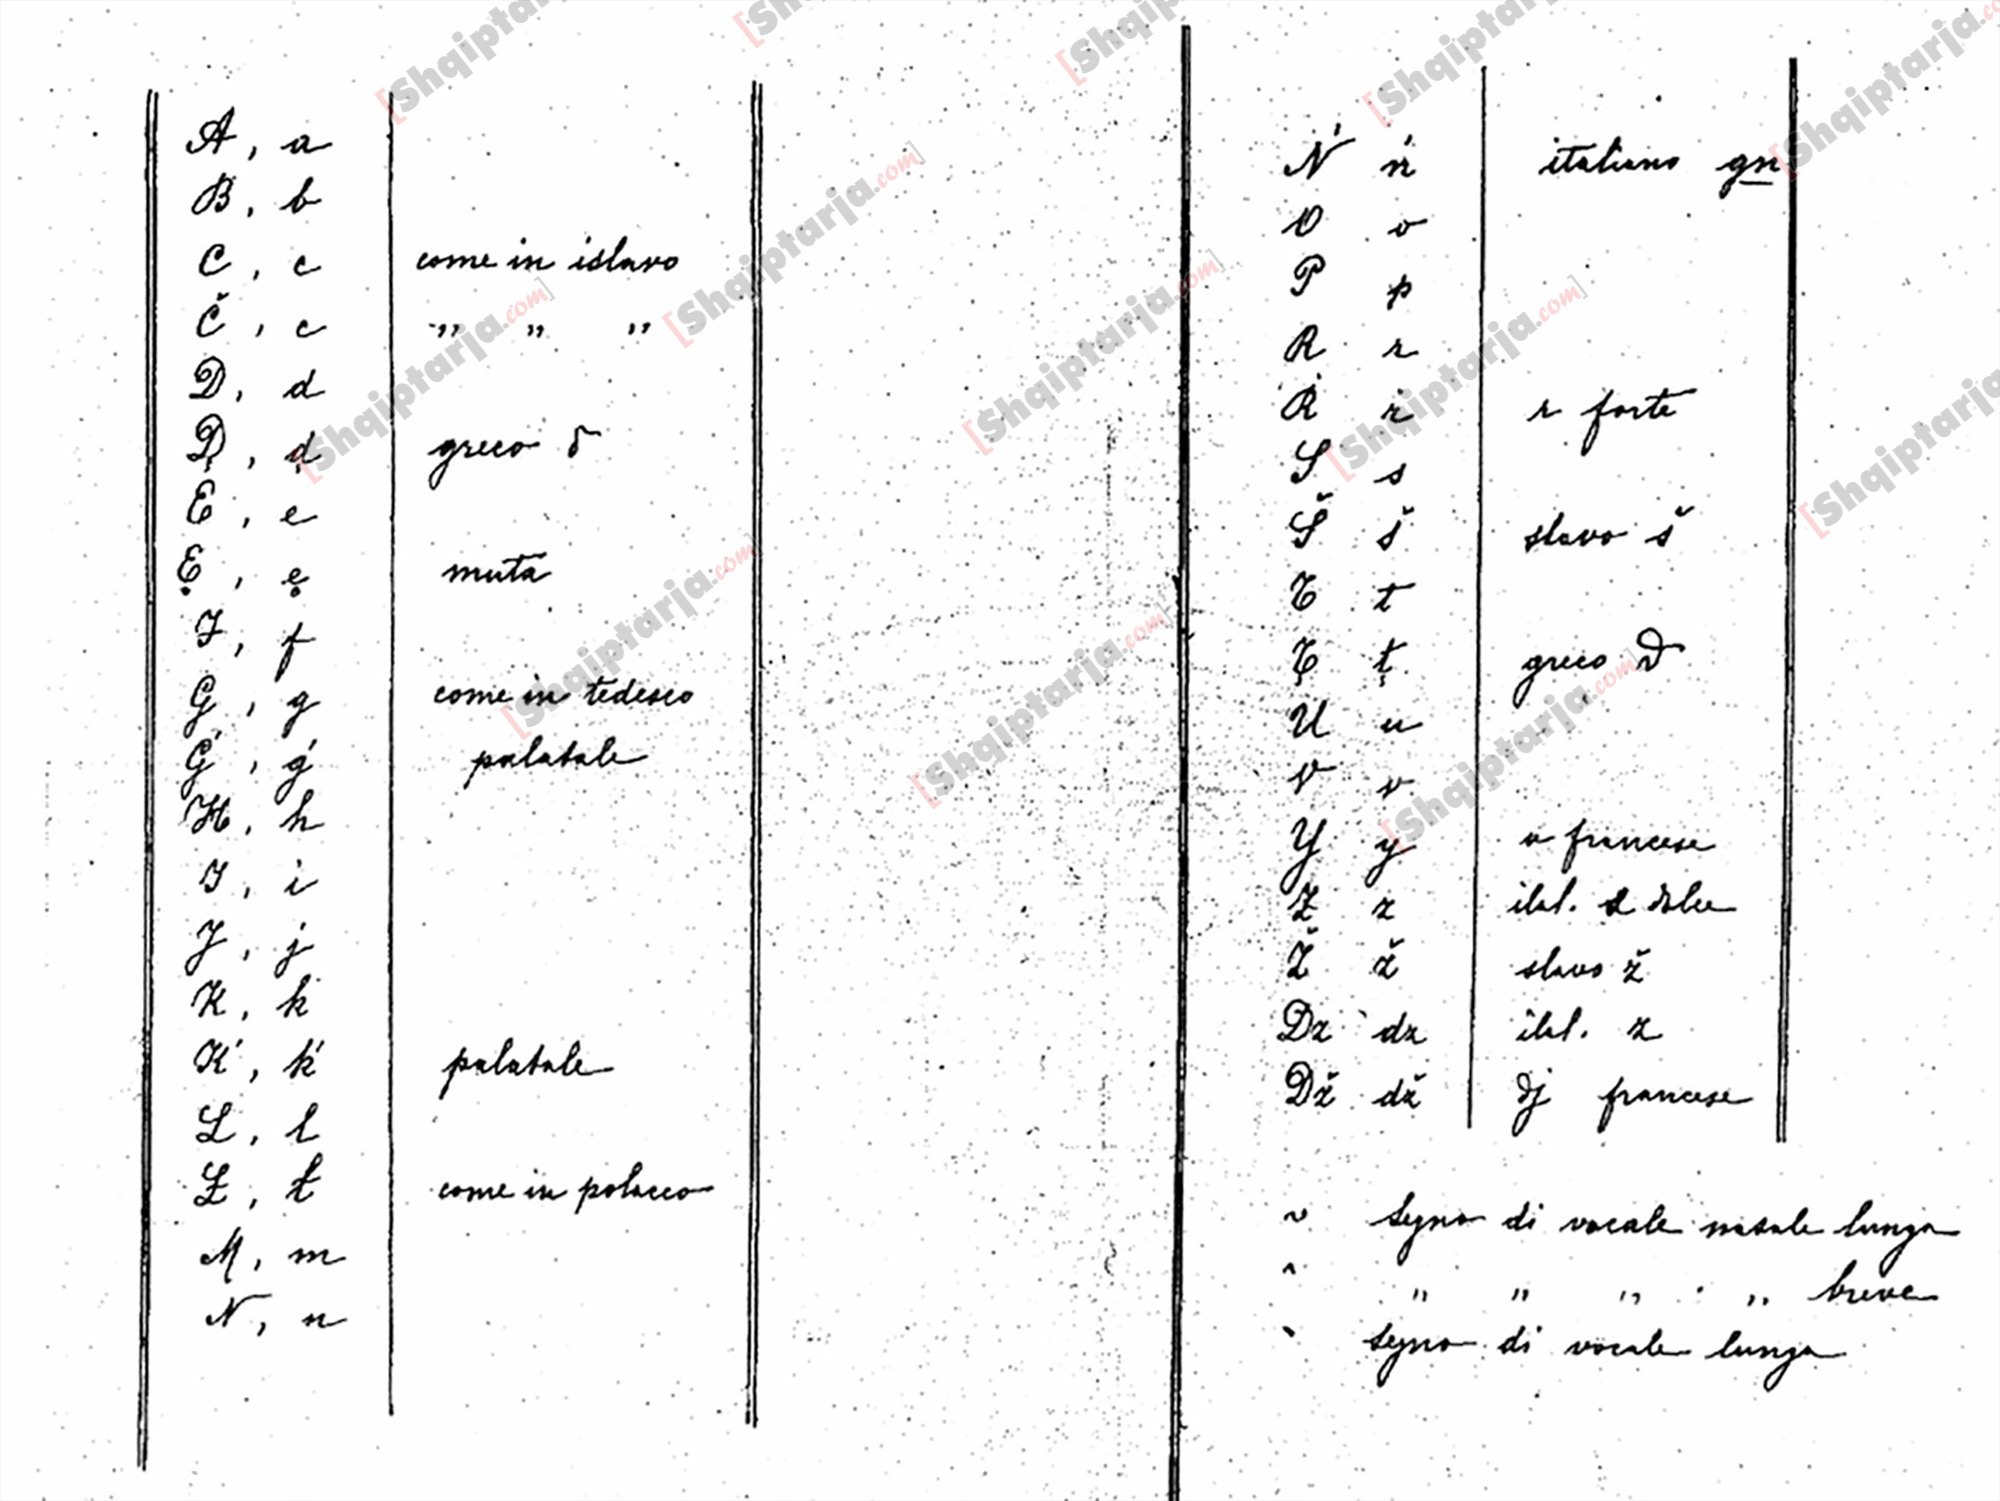 A, a
B, b
C, c come in islavo
Č, c ,, ,, ,,
D, d
Ḍ, ḍ greco δ
E, e
Ẹ, ẹ muta
F, f
G, g come in tedesco
Ǵ, ǵ palatale
H, h
I, i
J, j
K, k
Ḱ, ḱ palatale
L, l
Ł, ł come in polacco
M, m
N, n
Ń ń italiano gn
O o
P p
R r
Ṙ ṙ r forte
S s
Š š slavo š
T t
Ṭ ṭ greco ϑ
U u
V v
Y y u francese
Z z ital. s dolce
Ž ž slavo ž
Dz dz ital. z
Dž dž dj francese
~ segno di vocale nasale lunga
^ ,, ,, ,, ,, breve
` segno di vocale lunga
[Shqiptarja.com]